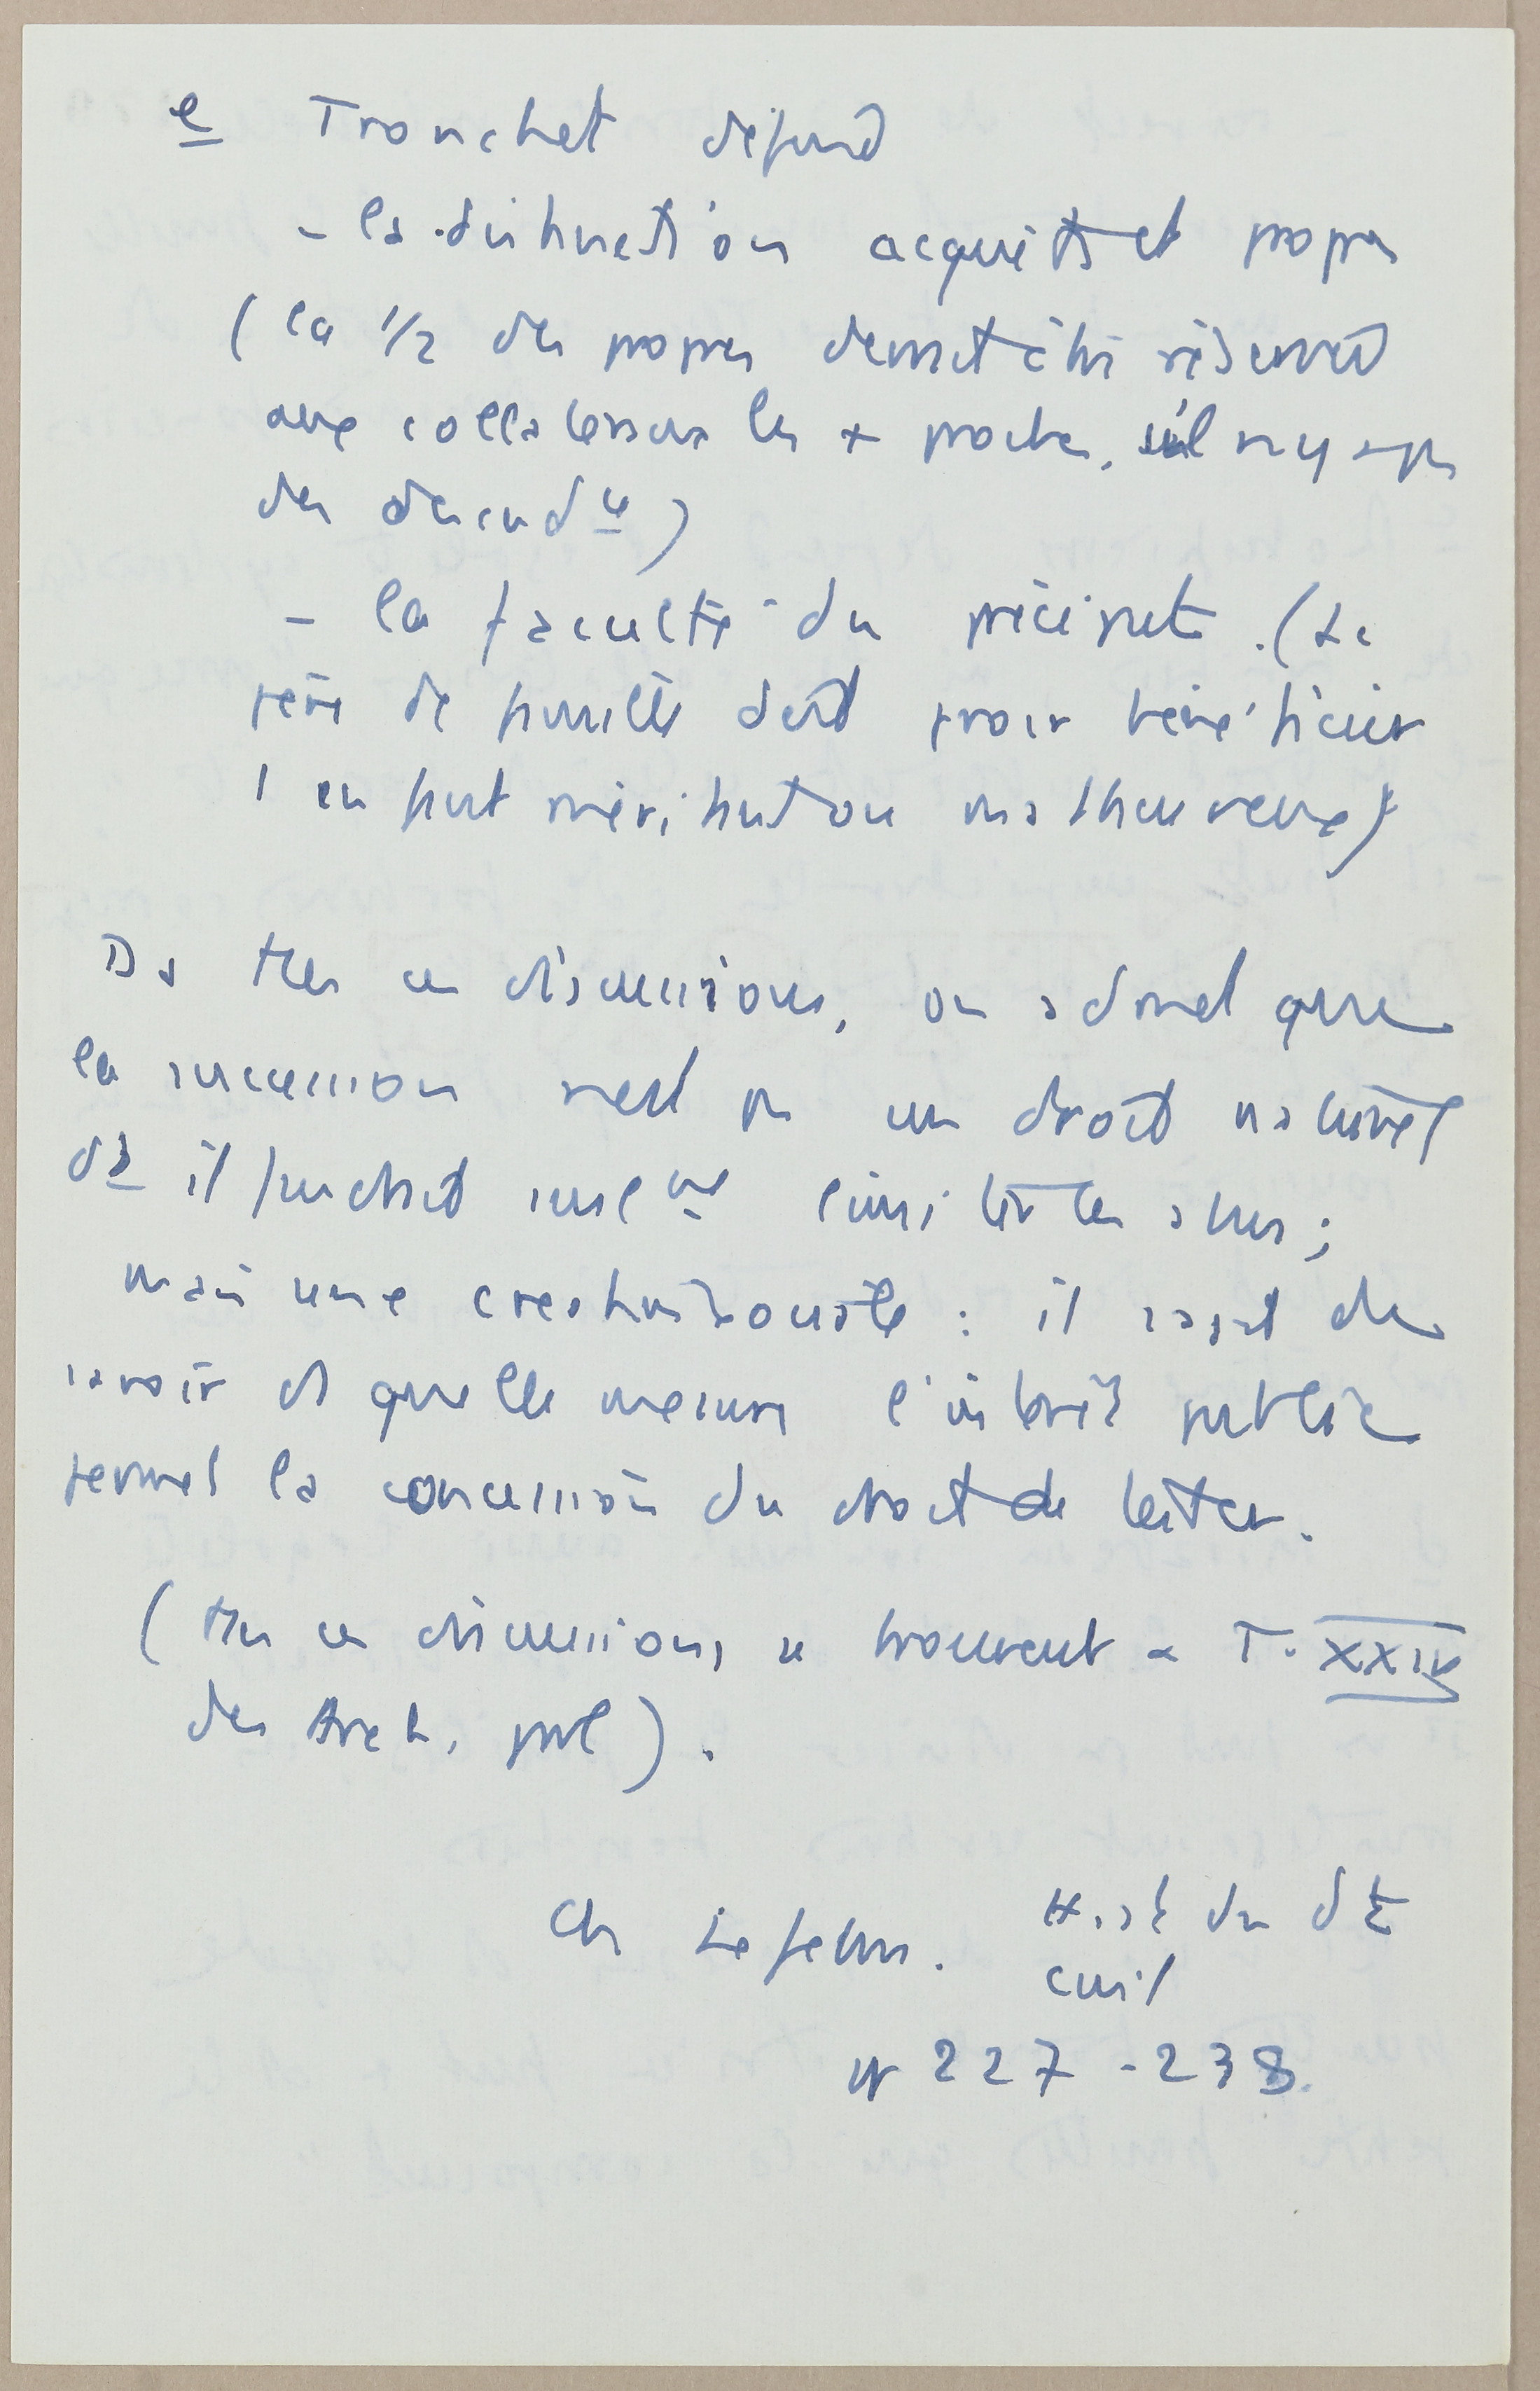 e Tronchet défend
- la distinction acquêts et propres
(la 1/2 des propres devrait être réservée
aux collatéraux les + proches, s'il n'y a pas
des descendts)
- la faculté du préciput. (Le
père de famille doit pouvoir bénéficier
1 enfant méritant ou malheureux)
Ds ttes ces discussions, on admet que
la succession n'est pas un droit naturel
dt il faudrait seulemt limiter les abus;
mais une création sociale : il s'agit de
savoir ds quelle mesure l'intérêt public
permet la concession du droit de tester.
(ttes ces discussions se trouvent T. XXIV
des Arch. parl).
Ch Lefebvre. Hist du dt
civil
pp 227-238.